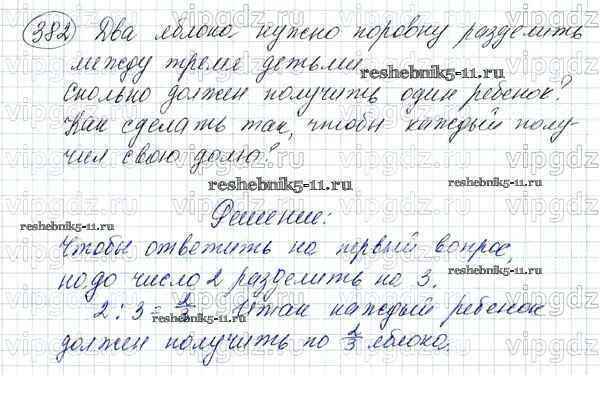 382 Два яблока нужно поровну разделить
между тремя детьми.
Сколько должен получить один ребенок?
Как сделать так, чтобы каждый полу-
чил свою долю?
Решение:
Чтобы ответить на первый вопрос,
надо число 2 разделить на 3.
2 : 3 = 2/3. Итак каждый ребенок
должен получить по 2/3 яблока.
reshebnik5-11.ru
reshebnik5-11.ru
reshebnik5-11.ru
reshebnik5-11.ru
reshebnik5-11.ru
reshebnik5-11.ru
vipgdz